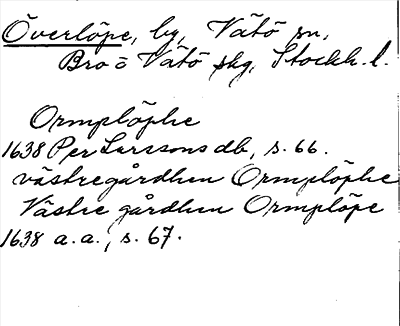 Överlöpe, by, Vätö sn,
Bro o Vätö skg, Stockh. l.
Ormplöphe
1638 Per Larssons db, s. 66.
västregårdhen Ormplöphe
Västre gårdhen Ormplöpe
1638 a. a., s. 67.